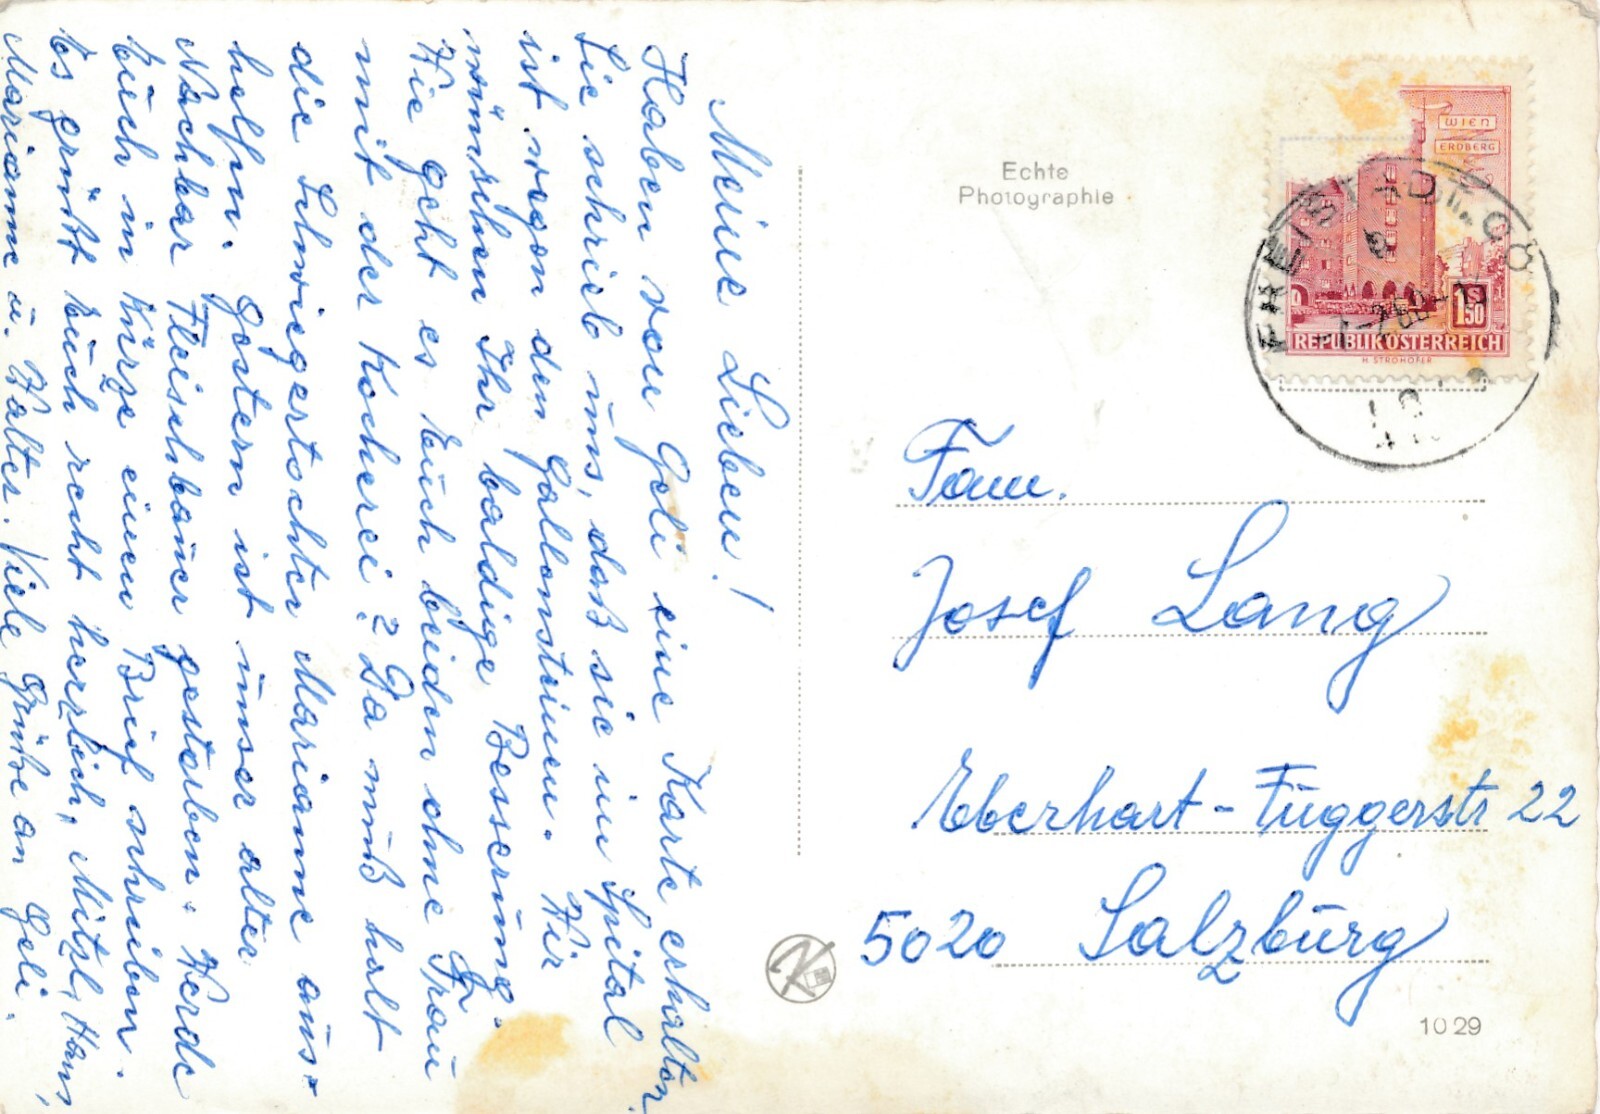 Meine Lieben!
Haben von Geli eine Karte erhalten.
Sie schrieb uns, daß sie im Spital
ist wegen den Gallensteinen. Wir
wünschen Ihr baldige Besserung.
Wie geht es Euch beiden ohne Frau
mit der Kocherei? Da muß halt
die Schwiegertochter Marianne aus-
helfen. Gestern ist unser alter
Nachbar Fleischbauer gestorben. Werde
Euch in Kürze einen Brief schreiben.
Es grüßt Euch recht herzlich, Mitzl, Hans,
Marianne u. Walter. Viele Grüße an Geli.
Echte
Photographie
WIEN
ERDBERG
S
1.50
REPUBLIK ÖSTERREICH
H. STROHOFER
FREISTADT, OÖ
Fam.
Josef Lang
Eberhart-Fuggerstr 22
5020 Salzburg
10 29